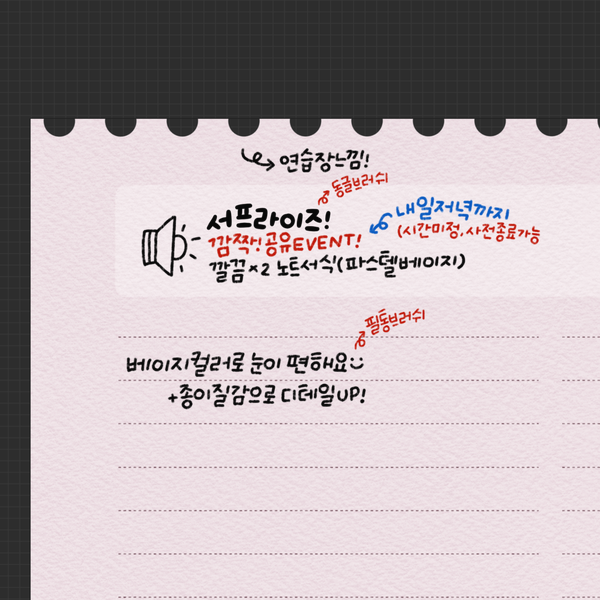 연습장느낌!
동글브러쉬
서프라이즈!
내일저녁까지
(시간미정, 사전종료가능
깜짝! 공유EVENT!
깔끔×2 노트서식(파스텔베이지)
필통브러쉬
베이지컬러로 눈이 편해요
+종이질감으로 디테일UP!